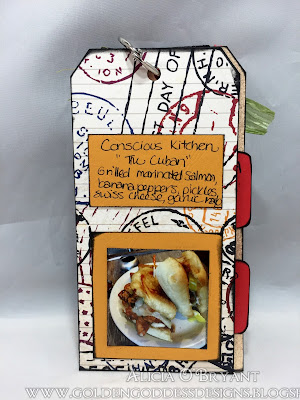 DAY OF
Conscious Kitchen
"The Cuban"
Grilled marinated Salmon,
banana peppers, pickles,
swiss cheese, garlic
ALICIA O'BRYANT
WWW.GOLDENGODDESSDESIGNS.BLOGSP